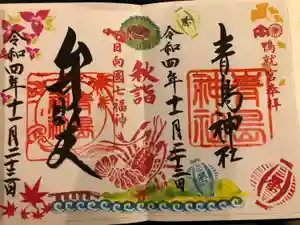 鴨就宮奉拝
青島神社
青島
神社
令和四年十一月二十三日
秋詣
日向國七福神
弁財天
令和四年十一月二十三日